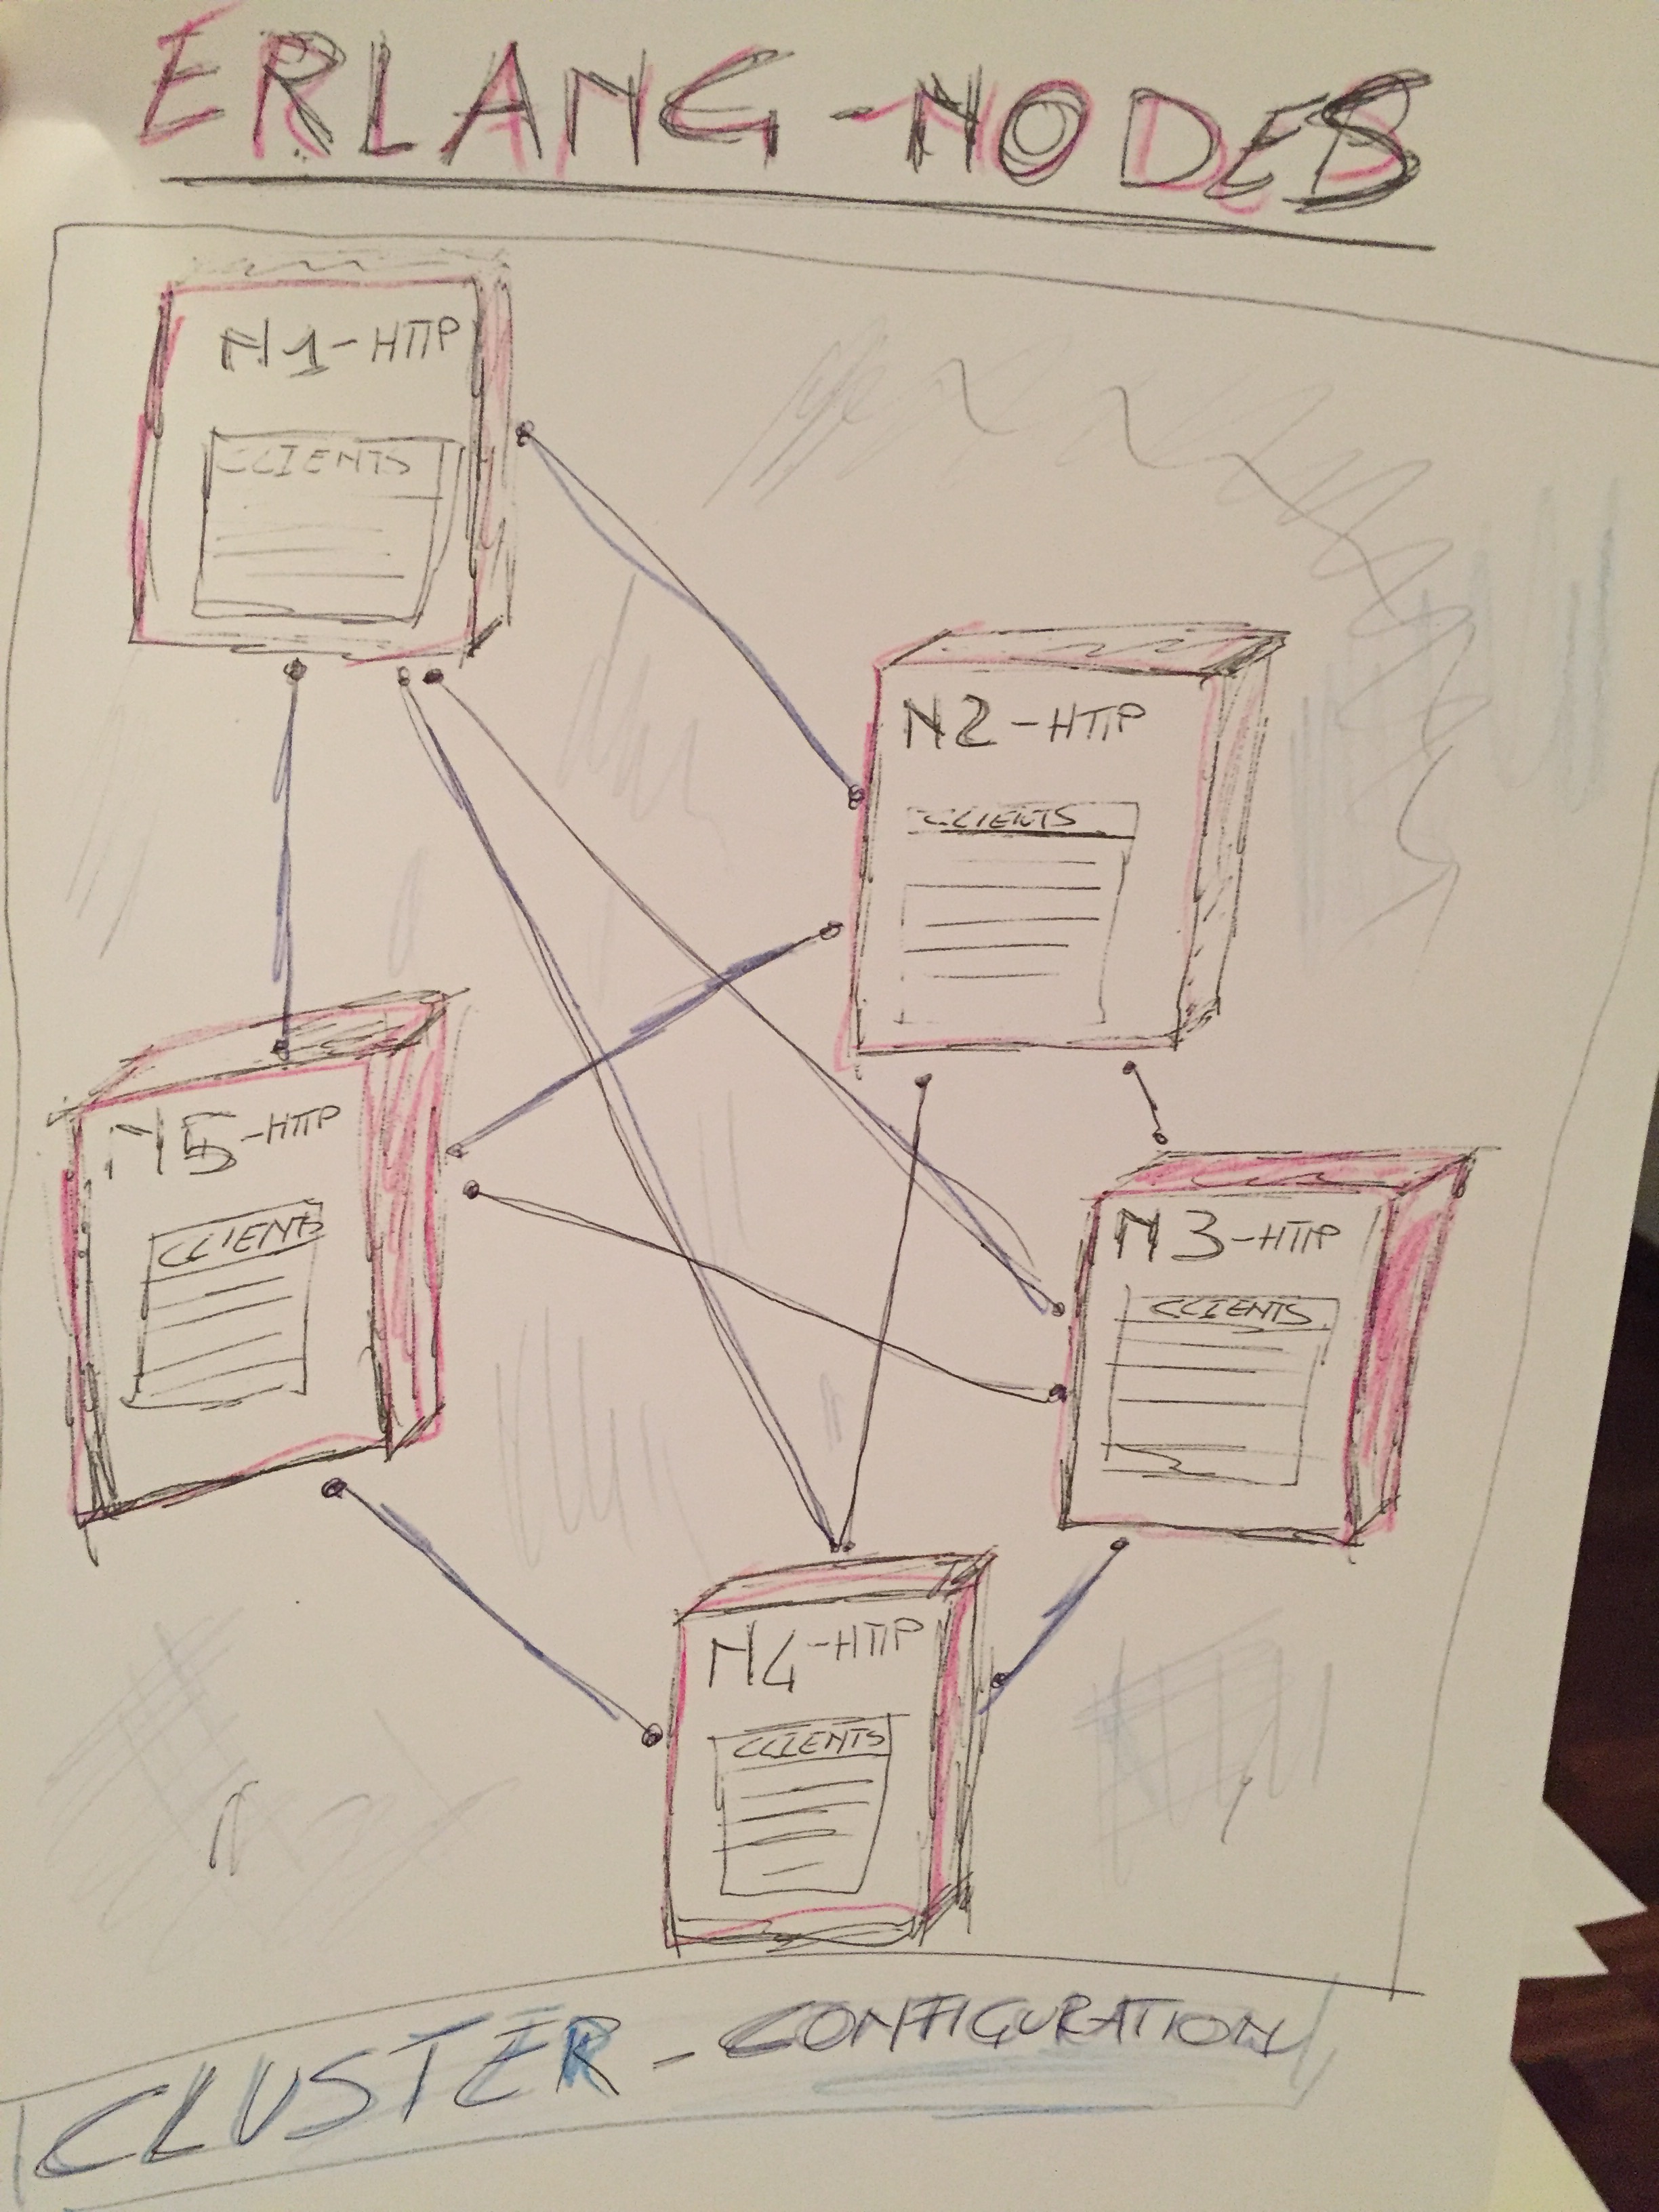 ERLANG-NODES
N1-HTTP
CLIENTS
N2-HTTP
CLIENTS
N5-HTTP
CLIENTS
N3-HTTP
CLIENTS
N4-HTTP
CLIENTS
CLUSTER-CONFIGURATION